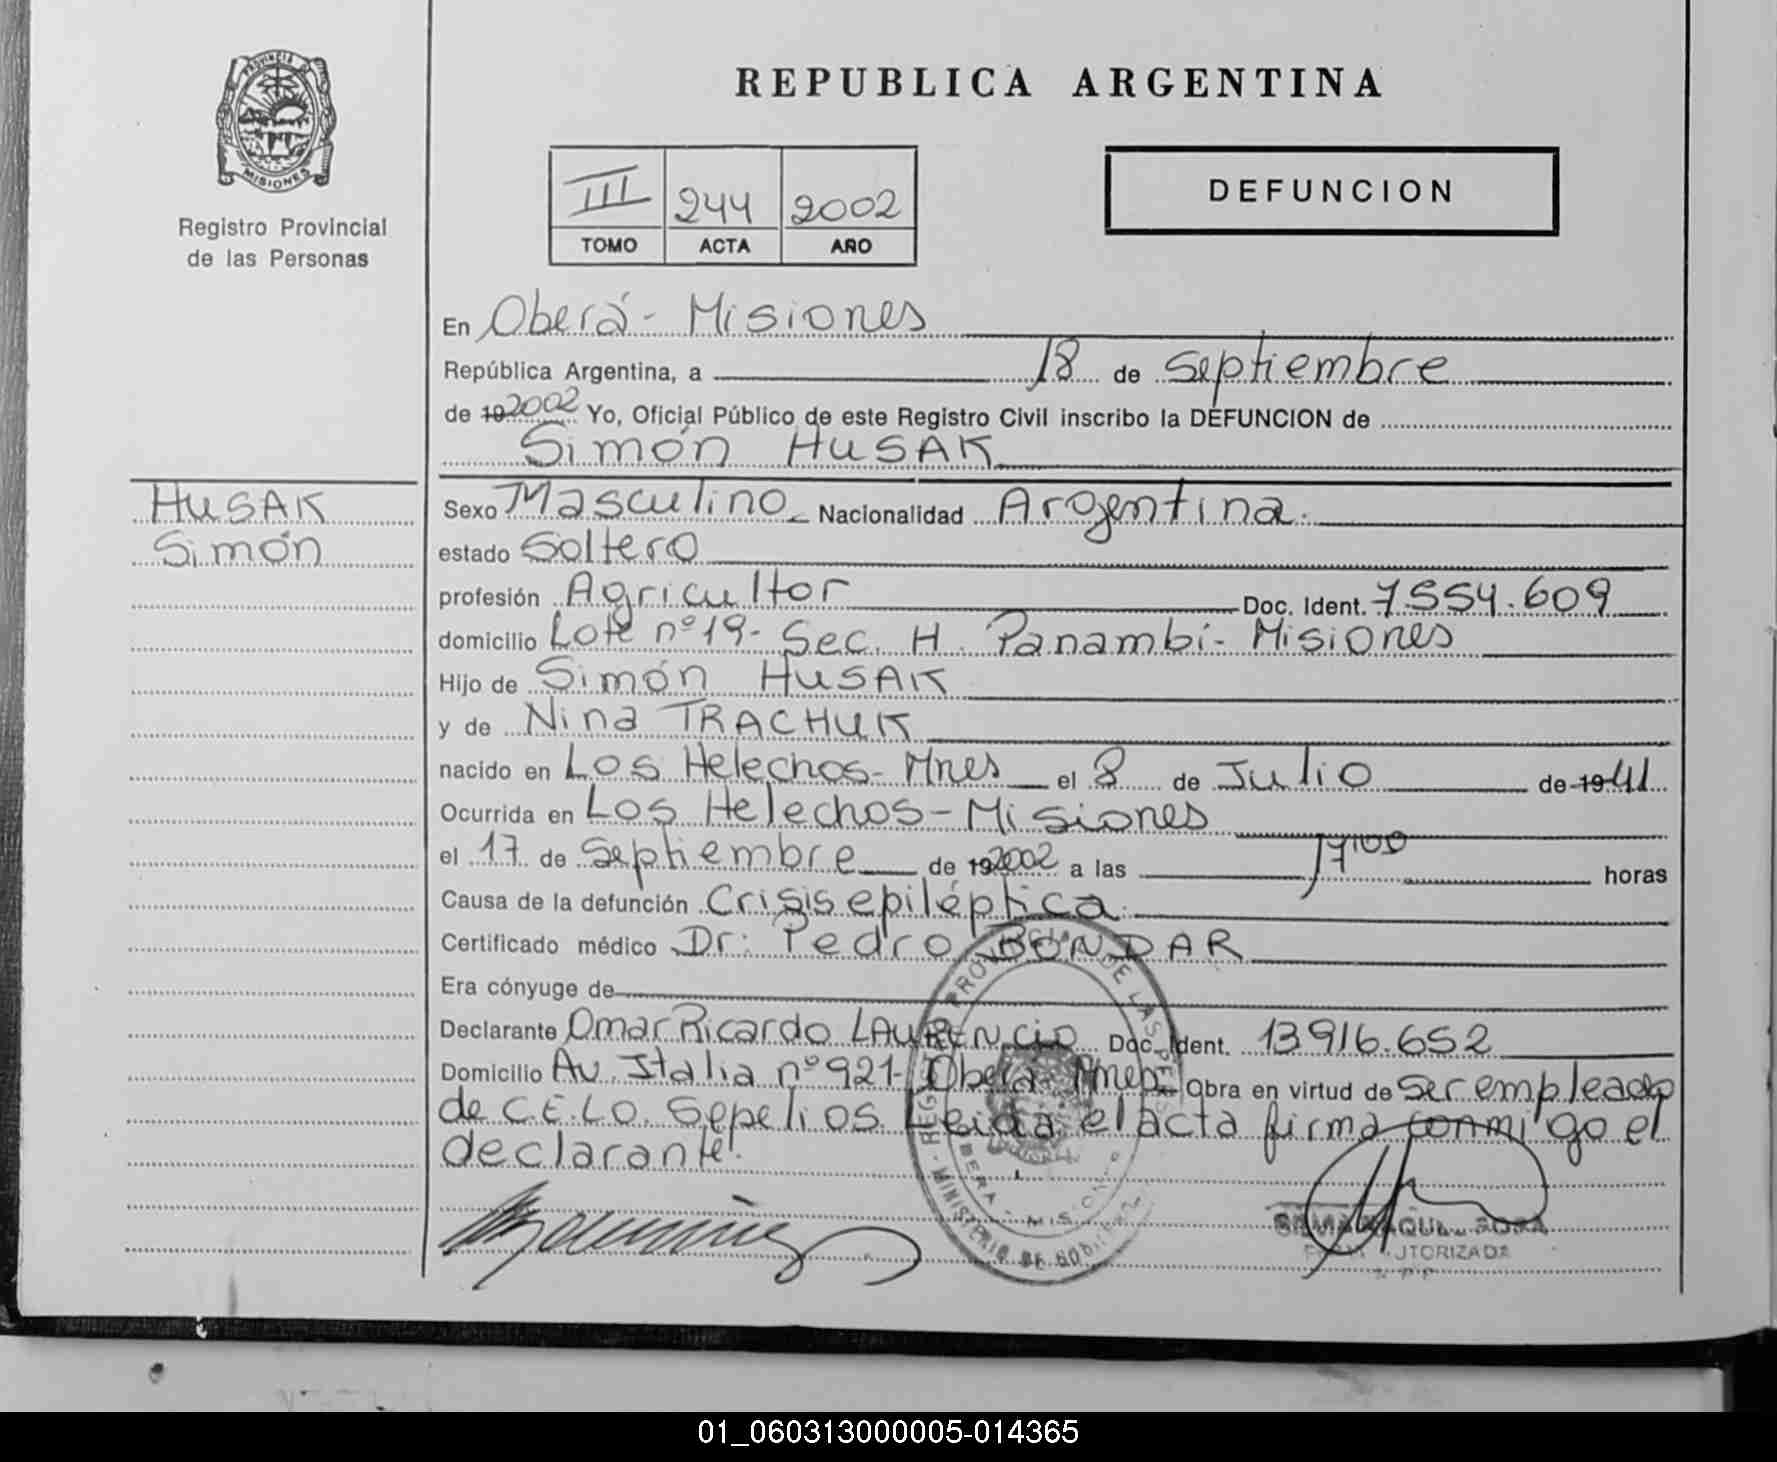 PROVINCIA DE
MISIONES
Registro Provincial
de las Personas
REPUBLICA ARGENTINA
III 244 2002
TOMO ACTA AÑO
DEFUNCION
En Oberá - Misiones
República Argentina, a 18 de Septiembre
de 19 2002 Yo, Oficial Público de este Registro Civil inscribo la DEFUNCION de
Simón HUSAK
HUSAK
Simón
Sexo Masculino Nacionalidad Argentina.
estado Soltero
profesión Agricultor Doc. Ident. 7554.609
domicilio Lote nº 19 - Sec. H. Panambí - Misiones
Hijo de Simón HUSAK
y de Nina TRACHUK
nacido en Los Helechos - Mnes el 8 de Julio de 1941
Ocurrida en Los Helechos - Misiones
el 17 de Septiembre de 19 2002 a las 17,00 horas
Causa de la defunción Crisis epiléptica.
Certificado médico Dr: Pedro BONDAR
Era cónyuge de
Declarante Omar Ricardo LAURENCIO Doc. Ident. 13916.652
Domicilio Av. Italia nº 921 - Oberá - Mnes. Obra en virtud de ser empleado
de C.E.L.O. Sepelios. Leida el acta firma conmigo el
declarante.
MINISTERIO DE GOBIERNO
OBERA - MISIONES
01_060313000005-014365